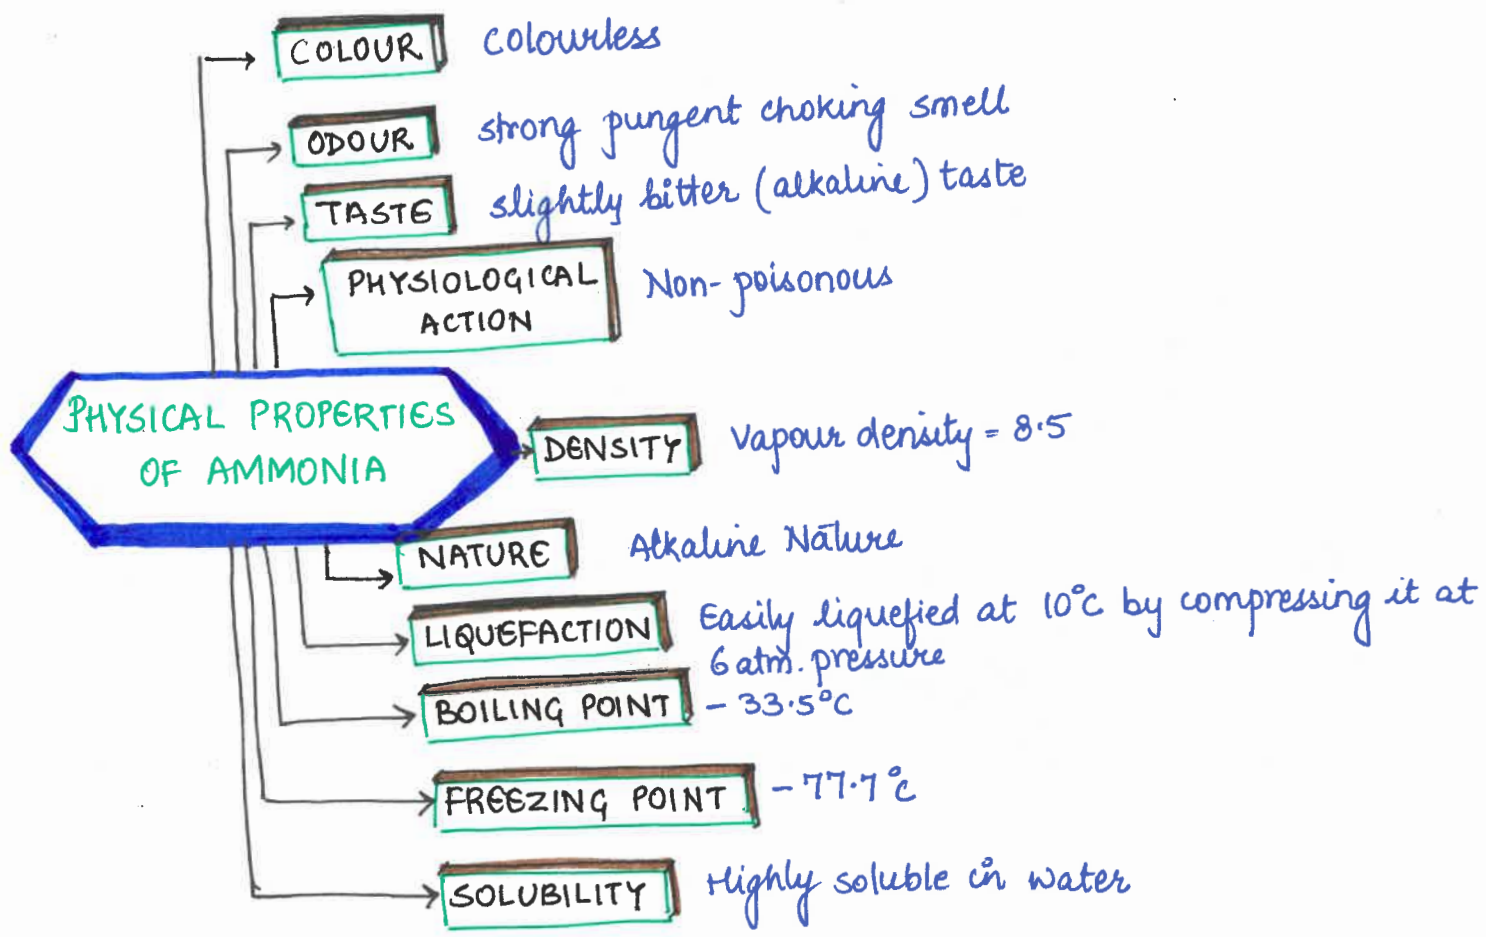 COLOUR colourless
ODOUR strong pungent choking smell
TASTE slightly bitter (alkaline) taste
PHYSIOLOGICAL Non-poisonous
ACTION
PHYSICAL PROPERTIES
OF AMMONIA
DENSITY Vapour density = 8.5
NATURE Alkaline Nature
LIQUEFACTION Easily liquefied at 10°C by compressing it at
6 atm. pressure
BOILING POINT - 33.5°C
FREEZING POINT - 77.7°C
SOLUBILITY Highly soluble in water